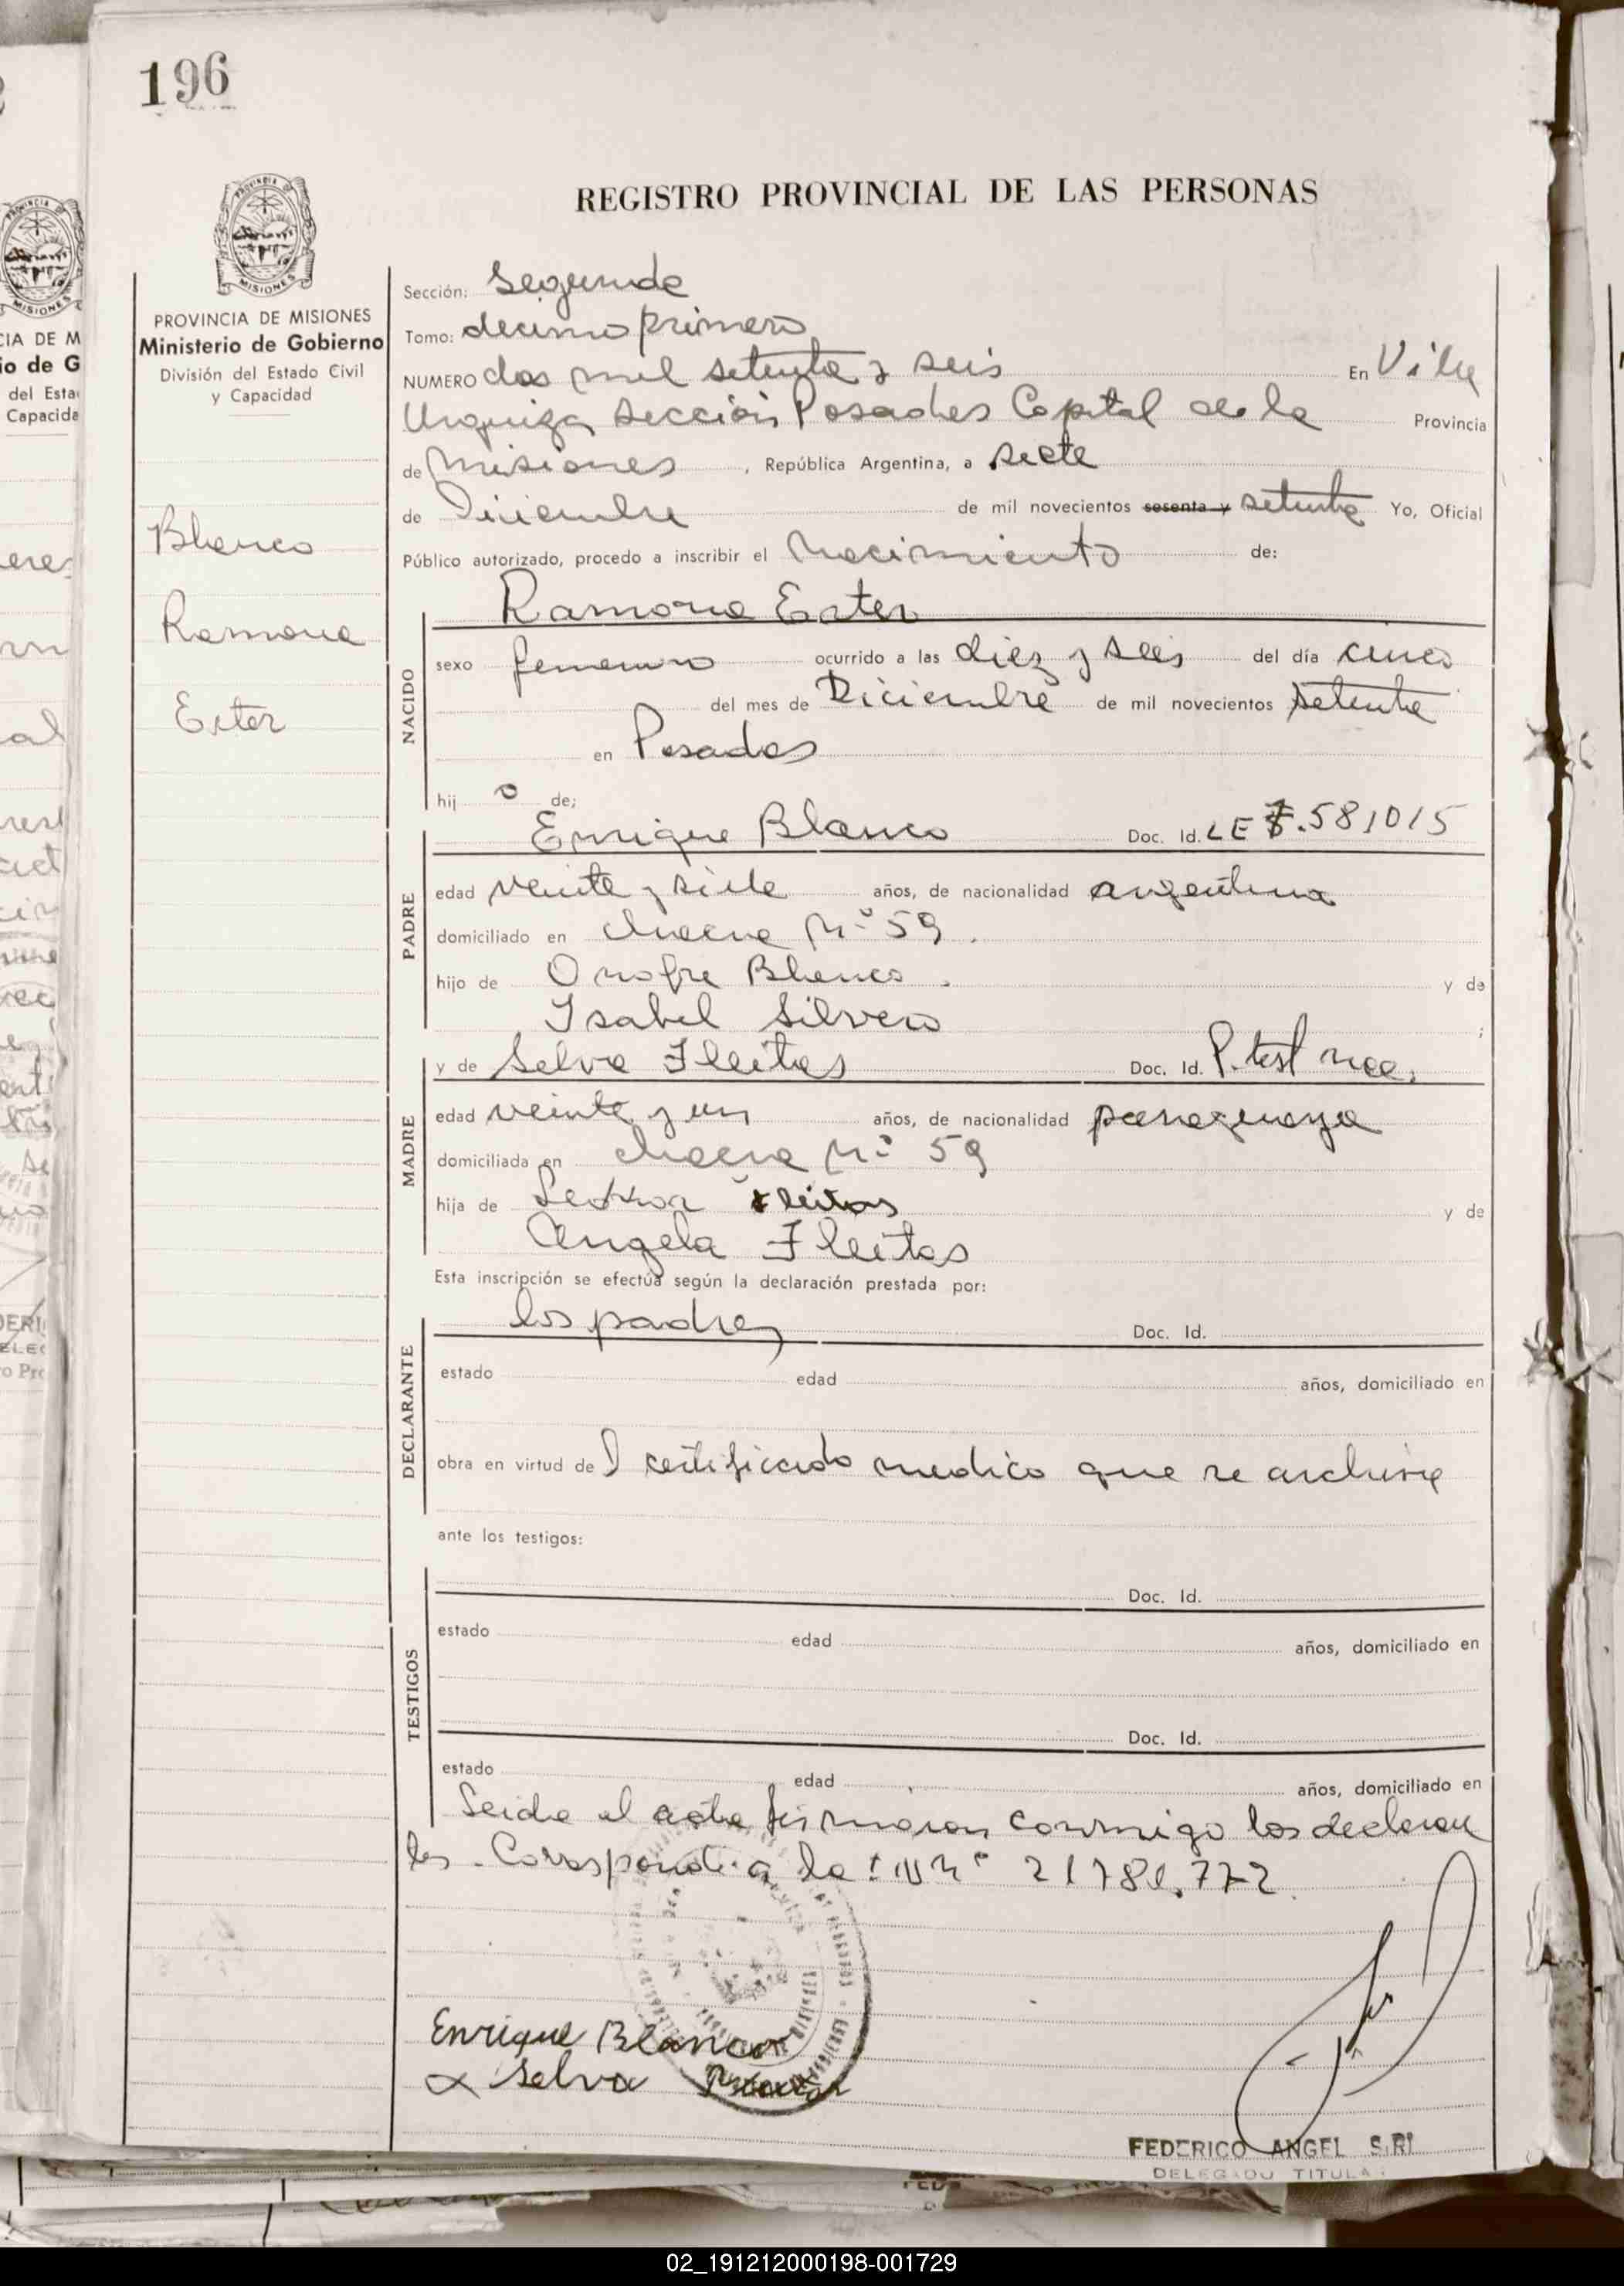 196
REGISTRO PROVINCIAL DE LAS PERSONAS
PROVINCIA DE MISIONES
Ministerio de Gobierno
División del Estado Civil
y Capacidad
Blanco
Ramona
Ester
Sección: segunda
Tomo: decimo primero
NUMERO dos mil setenta y seis En Villa
Urquiza sección Posadas Capital de la Provincia
de Misiones, República Argentina, a siete
de Diciembre de mil novecientos sesenta y setenta Yo, Oficial
Público autorizado, procedo a inscribir el Nacimiento de:
NACIDO
Ramona Ester
sexo femenino ocurrido a las diez y seis del día cinco
del mes de Diciembre de mil novecientos setenta
en Posadas
hij o de;
PADRE
Enrique Blanco Doc. Id. LE 7.581015
edad veinte y siete años, de nacionalidad argentina
domiciliado en chacra Nº 59.
hijo de Onofre Blanco. y de
Isabel Silvero ;
MADRE
y de Selva Fleitas Doc. Id. P. test nac.
edad veinte y un años, de nacionalidad paraguaya
domiciliada en chacra Nº 59
hija de Fleitas y de
Angela Fleitas
Esta inscripción se efectúa según la declaración prestada por:
DECLARANTE
los padres Doc. Id.
estado edad años, domiciliado en
obra en virtud de l certificado medico que se archiva
ante los testigos:
TESTIGOS
Doc. Id.
estado edad años, domiciliado en
Doc. Id.
estado edad años, domiciliado en
Leida el acta firmaron conmigo los declaran
tes. Corresponde a la Nº
Enrique Blanco
Selva
FEDERICO ANGEL S.RI
DELEGADO TITULA
02_191212000198-001729